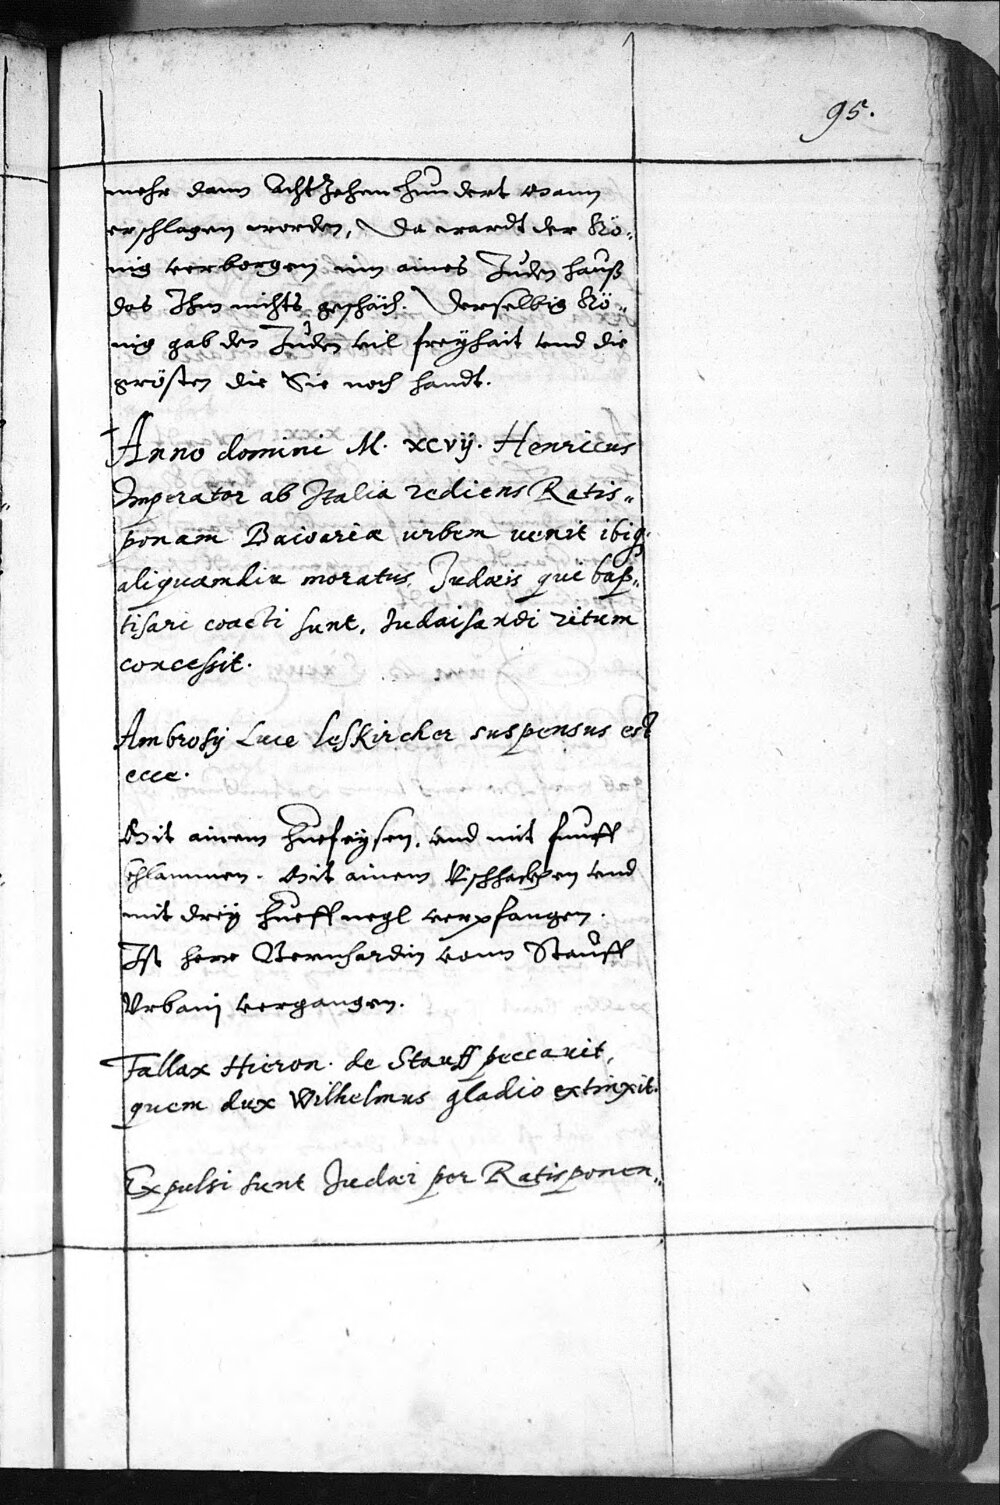 95.
mehr dann Achtzehenhundert Mann
erschlagen worden, Da wardt der Kö„
nig verborgen inn aines Juden hauß
das Ihm nichts geschäch. Derselbig Kö„
nig gab den Juden vil freÿhait und die
grösten die Sie noch handt.
Anno domini M. xcvij. Henricus
Imperator ab Italia rediens Ratis„
ponam Baioariæ urbem uenit ibiq.
aliquamdiu moratus, Judæis qui bap„
tisari coacti sunt, Judaisandi ritum
concessit.
Ambrosij Luce leskircher suspensus est
ecce.
Mit ainem Huefeÿsen, und mit fünff
Chlammen. Mit ainem Vischhackhen und
mit dreÿ Hueffnegl verpfangen.
Ist herr Bernhardin vonn Stauff
Vrbanj vergangen.
Fallax Hieron. de Stauff peccauit,
quem dux Wilhelmus gladio extinxit.
Expulsi sunt Judæi per Ratisponen„